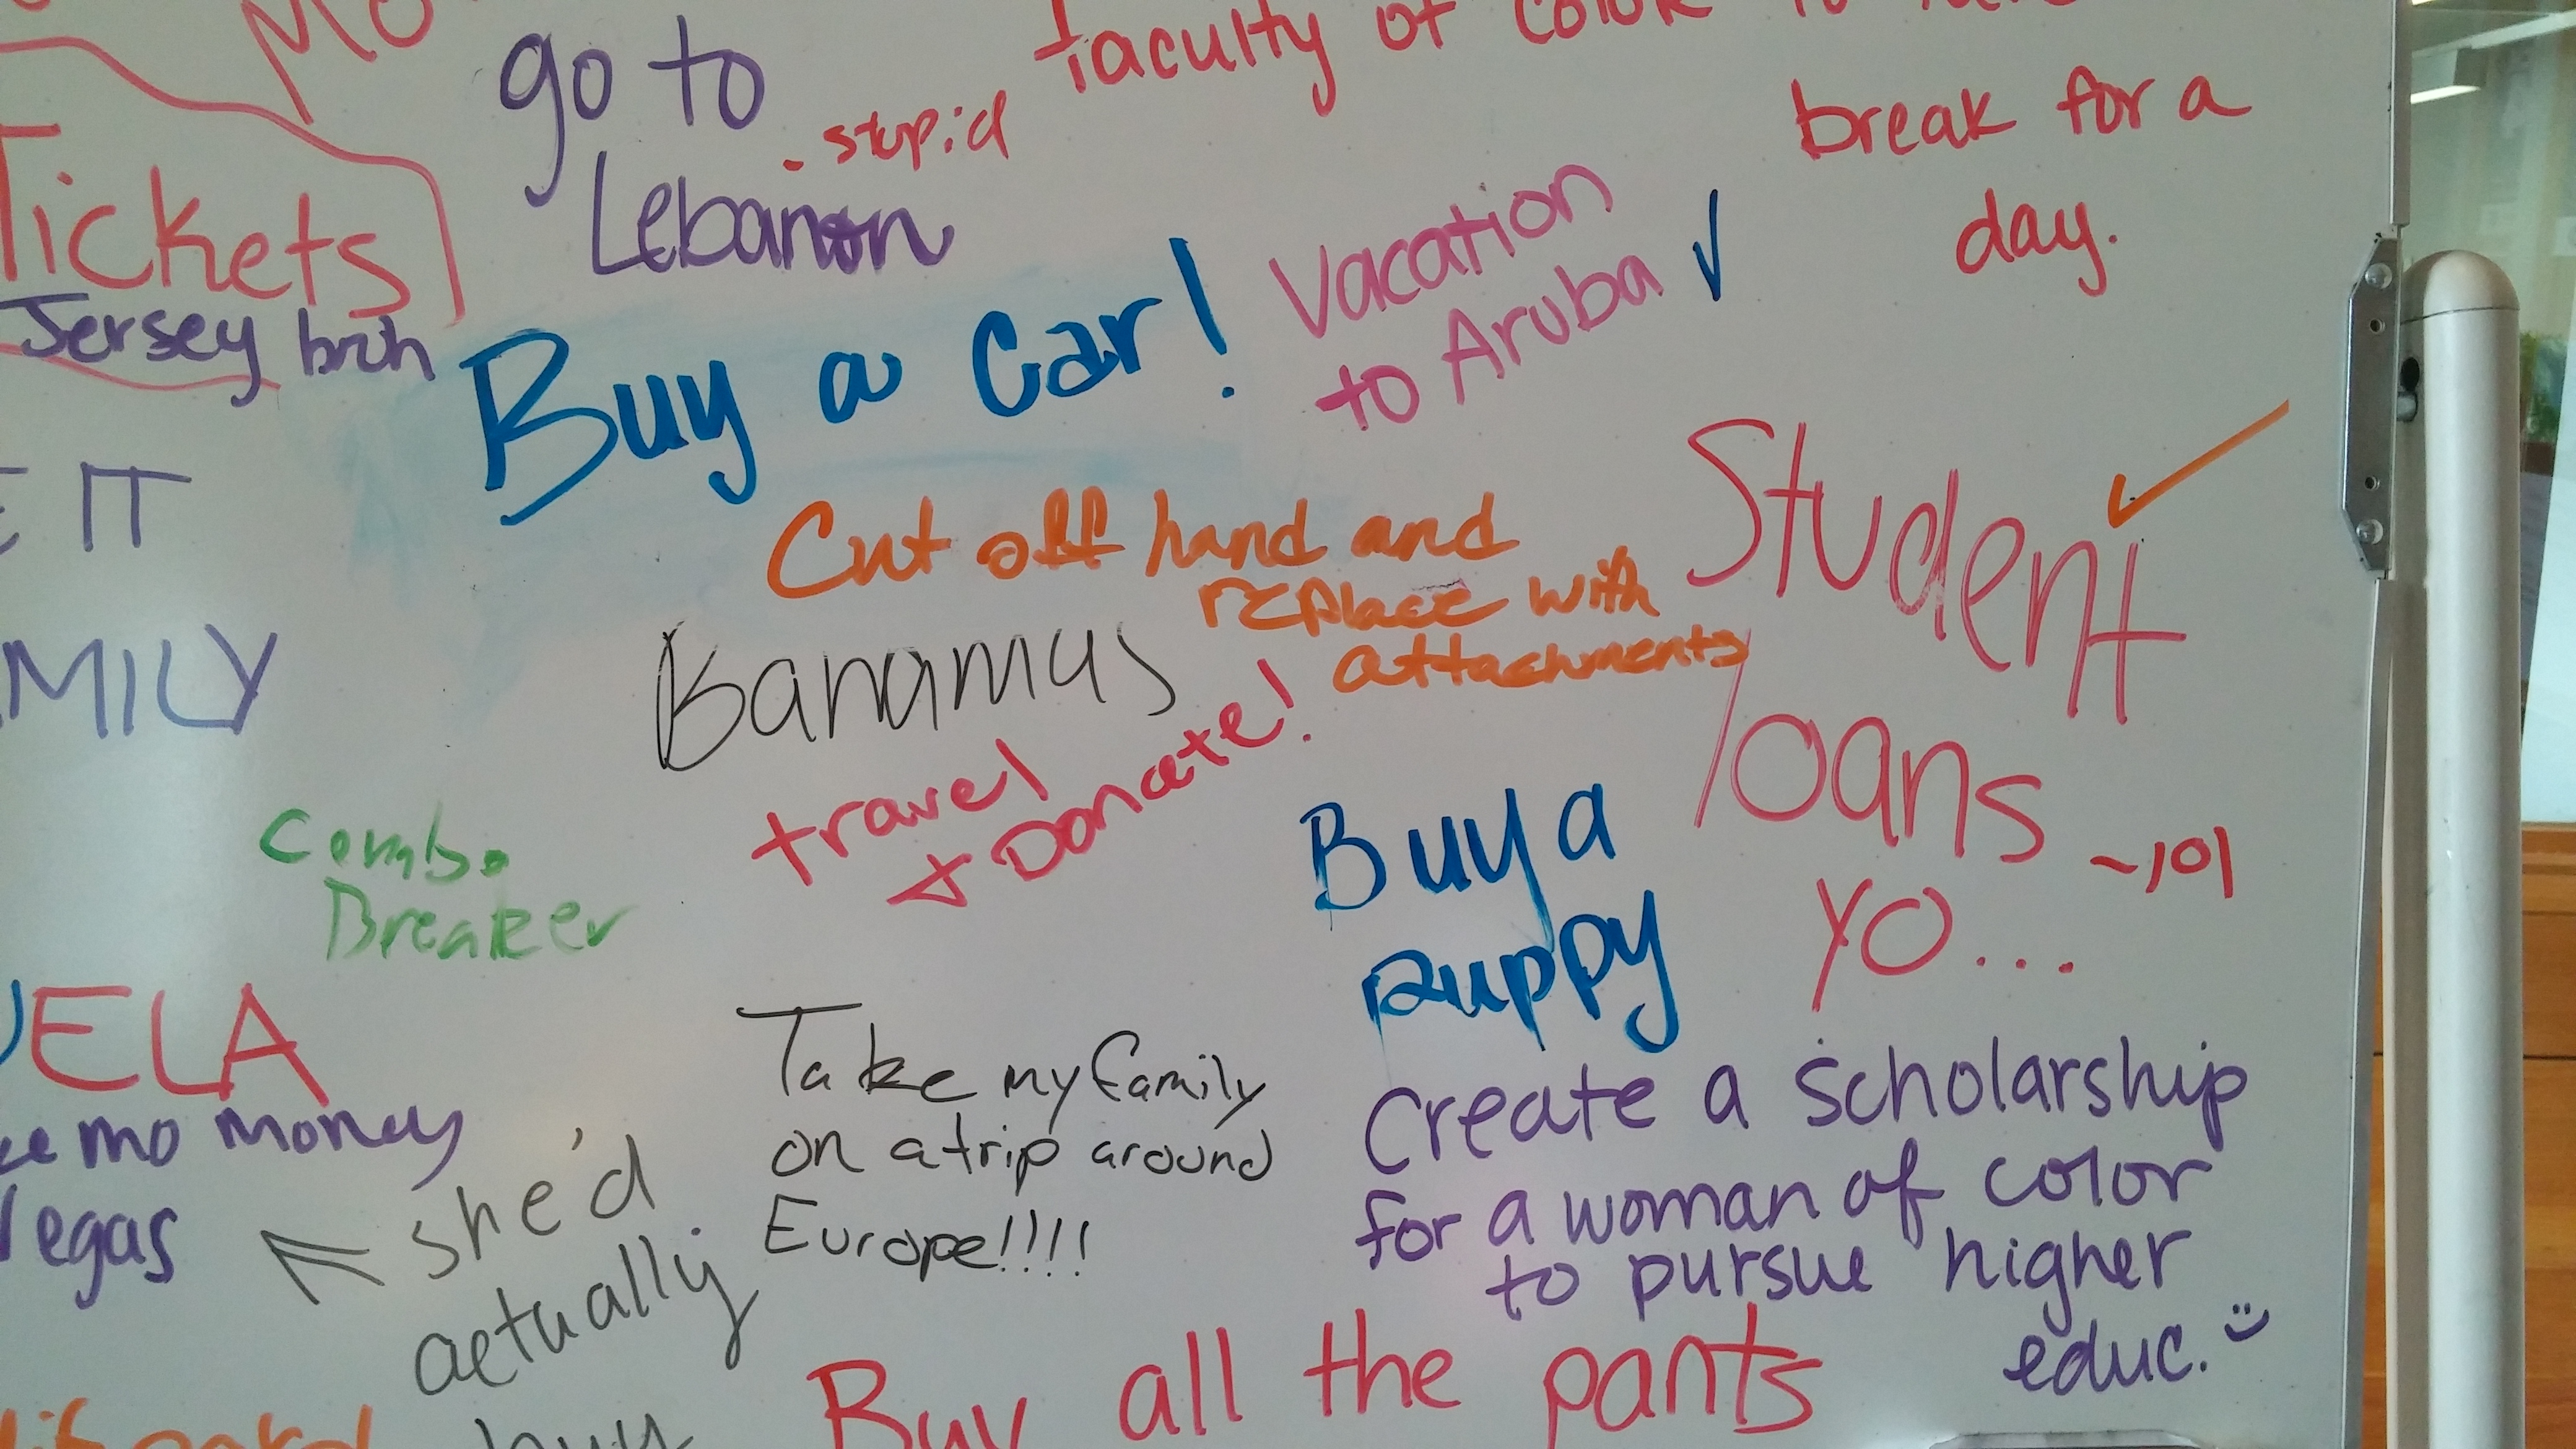 go to
Lebanon
. stupid
faculty of color to
break for a
day.
Tickets
Jersey bruh
Buy a Car!
Vacation
to Aruba ✓
IT
Cut off hand and
replace with
attachments
Student ✓
loans
yo...
~101
MILY
Banamus
travel
+ Donate!
Combo
Breaker
Buy a
puppy
ELA
mo money
Vegas
she'd
actually
buy
Take my family
on a trip around
Europe!!!!
Create a scholarship
for a woman of color
to pursue higher
educ. :)
Buy all the pants